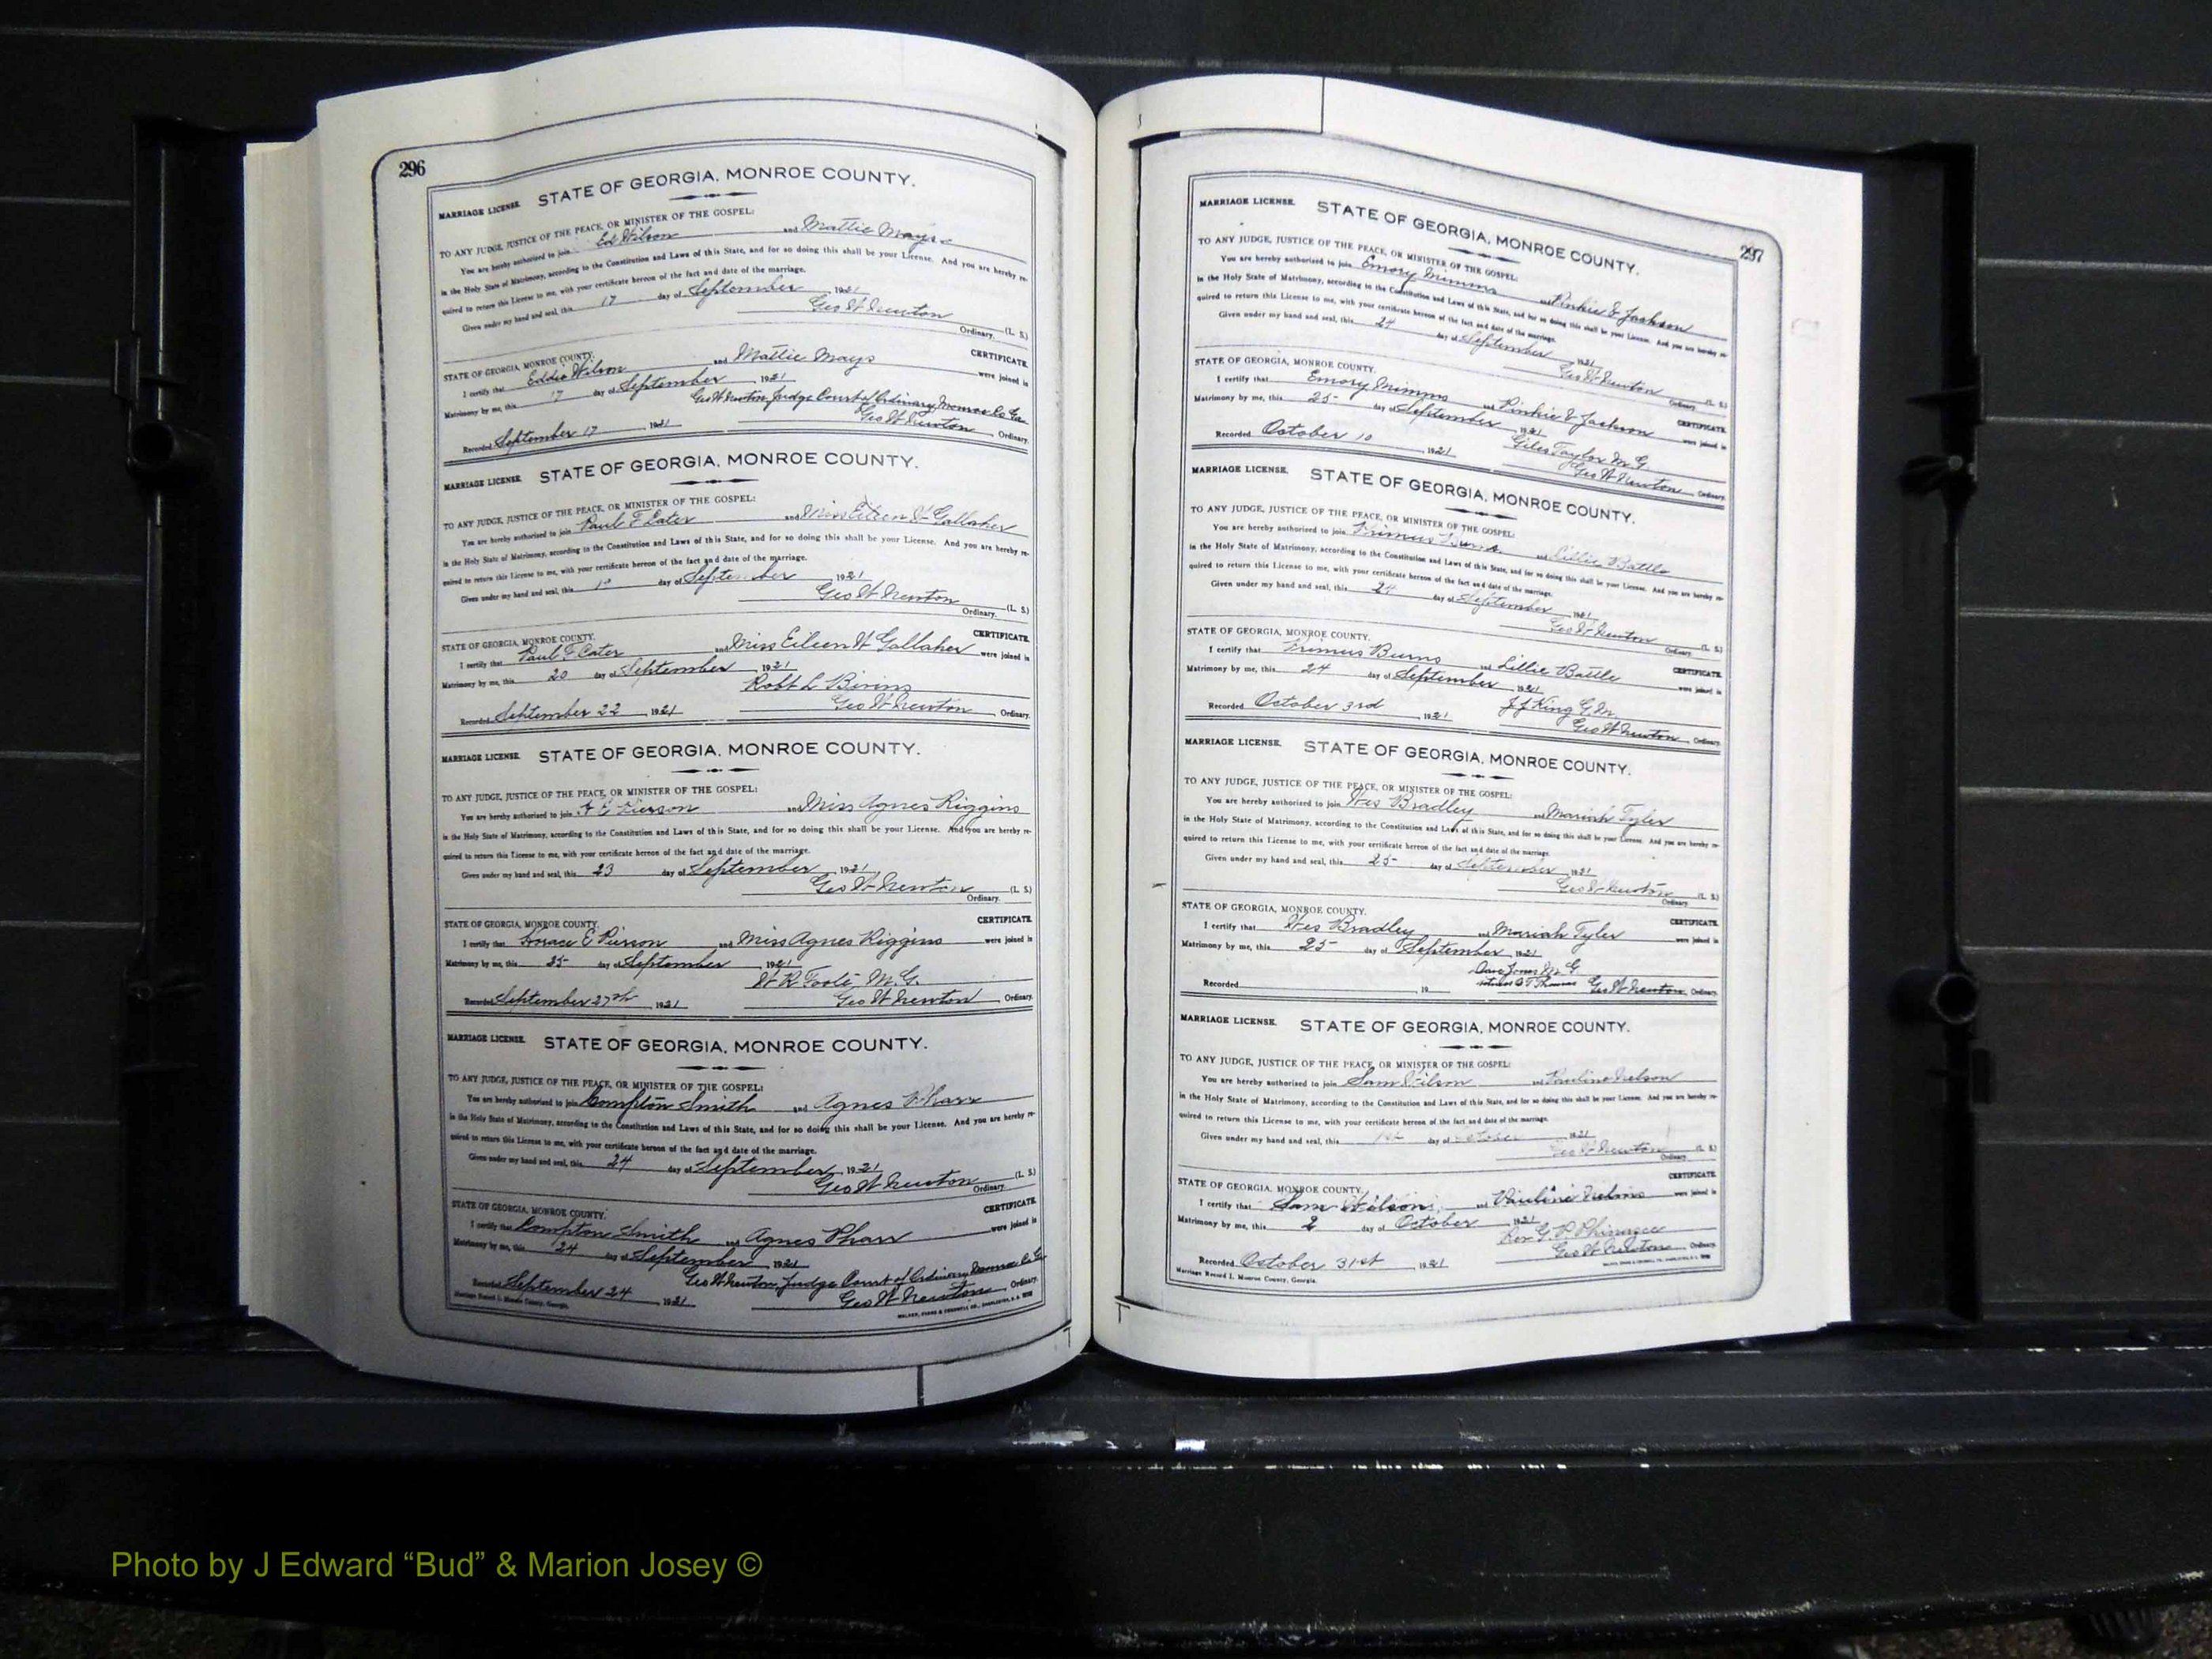 296
STATE OF GEORGIA, MONROE COUNTY.
MARRIAGE LICENSE.
TO ANY JUDGE, JUSTICE OF THE PEACE, OR MINISTER OF THE GOSPEL:
You are hereby authorized to join Ed Wilson and Mattie Mays
in the Holy State of Matrimony, according to the Constitution and Laws of this State, and for so doing this shall be your License. And you are hereby re-
quired to return this License to me, with your certificate hereon of the fact and date of the marriage.
Given under my hand and seal, this 17 day of September 1921
Geo W Newton (L. S.)
Ordinary.
STATE OF GEORGIA, MONROE COUNTY. CERTIFICATE.
I certify that Eddie Wilson and Mattie Mays were joined in
Matrimony by me, this 17 day of September 1921
Geo W Newton, Judge Court of Ordinary, Monroe Co Ga
Recorded September 17 1921 Geo W Newton Ordinary.
MARRIAGE LICENSE. STATE OF GEORGIA, MONROE COUNTY.
TO ANY JUDGE, JUSTICE OF THE PEACE, OR MINISTER OF THE GOSPEL:
You are hereby authorized to join Paul F Cater and Miss Eileen W Gallaher
in the Holy State of Matrimony, according to the Constitution and Laws of this State, and for so doing this shall be your License. And you are hereby re-
quired to return this License to me, with your certificate hereon of the fact and date of the marriage.
Given under my hand and seal, this day of September 1921
Geo W Newton (L. S.)
Ordinary.
STATE OF GEORGIA, MONROE COUNTY. CERTIFICATE.
I certify that Paul F Cater and Miss Eileen W Gallaher were joined in
Matrimony by me, this 20 day of September 1921
Robt L Bivins
Recorded September 22 1921 Geo W Newton Ordinary.
MARRIAGE LICENSE. STATE OF GEORGIA, MONROE COUNTY.
TO ANY JUDGE, JUSTICE OF THE PEACE, OR MINISTER OF THE GOSPEL:
You are hereby authorized to join H E Pierson and Miss Agnes Riggins
in the Holy State of Matrimony, according to the Constitution and Laws of this State, and for so doing this shall be your License. And you are hereby re-
quired to return this License to me, with your certificate hereon of the fact and date of the marriage.
Given under my hand and seal, this 23 day of September 1921
Geo W Newton (L. S.)
Ordinary.
STATE OF GEORGIA, MONROE COUNTY. CERTIFICATE.
I certify that Horace E Pierson and Miss Agnes Riggins were joined in
Matrimony by me, this 25 day of September 1921
W R Foote, M.G.
Recorded September 27th 1921 Geo W Newton Ordinary.
MARRIAGE LICENSE. STATE OF GEORGIA, MONROE COUNTY.
TO ANY JUDGE, JUSTICE OF THE PEACE, OR MINISTER OF THE GOSPEL:
You are hereby authorized to join Compton Smith and Agnes Pharr
in the Holy State of Matrimony, according to the Constitution and Laws of this State, and for so doing this shall be your License. And you are hereby re-
quired to return this License to me, with your certificate hereon of the fact and date of the marriage.
Given under my hand and seal, this 24 day of September 1921
Geo W Newton (L. S.)
Ordinary.
STATE OF GEORGIA, MONROE COUNTY. CERTIFICATE.
I certify that Compton Smith and Agnes Pharr were joined in
Matrimony by me, this 24 day of September 1921
Geo W Newton, Judge Court of Ordinary, Monroe Co Ga
Recorded September 24 1921 Geo W Newton Ordinary.
Marriage Record I, Monroe County, Georgia.
297
MARRIAGE LICENSE. STATE OF GEORGIA, MONROE COUNTY.
TO ANY JUDGE, JUSTICE OF THE PEACE, OR MINISTER OF THE GOSPEL:
You are hereby authorized to join Emory Mimms and Pinkie E Jackson
in the Holy State of Matrimony, according to the Constitution and Laws of this State, and for so doing this shall be your License. And you are hereby re-
quired to return this License to me, with your certificate hereon of the fact and date of the marriage.
Given under my hand and seal, this 24 day of September 1921
Geo W Newton (L. S.)
Ordinary.
STATE OF GEORGIA, MONROE COUNTY. CERTIFICATE.
I certify that Emory Mimms and Pinkie E Jackson were joined in
Matrimony by me, this 25 day of September 1921
Giles Taylor M.G.
Recorded October 10 1921 Geo W Newton Ordinary.
MARRIAGE LICENSE. STATE OF GEORGIA, MONROE COUNTY.
TO ANY JUDGE, JUSTICE OF THE PEACE, OR MINISTER OF THE GOSPEL:
You are hereby authorized to join Primus Burns and Lillie Battle
in the Holy State of Matrimony, according to the Constitution and Laws of this State, and for so doing this shall be your License. And you are hereby re-
quired to return this License to me, with your certificate hereon of the fact and date of the marriage.
Given under my hand and seal, this 24 day of September 1921
Geo W Newton (L. S.)
Ordinary.
STATE OF GEORGIA, MONROE COUNTY. CERTIFICATE.
I certify that Primus Burns and Lillie Battle were joined in
Matrimony by me, this 24 day of September 1921
J J King G.M.
Recorded October 3rd 1921 Geo W Newton Ordinary.
MARRIAGE LICENSE. STATE OF GEORGIA, MONROE COUNTY.
TO ANY JUDGE, JUSTICE OF THE PEACE, OR MINISTER OF THE GOSPEL:
You are hereby authorized to join Wes Bradley and Mariah Tyler
in the Holy State of Matrimony, according to the Constitution and Laws of this State, and for so doing this shall be your License. And you are hereby re-
quired to return this License to me, with your certificate hereon of the fact and date of the marriage.
Given under my hand and seal, this 25 day of September 1921
Geo W Newton (L. S.)
Ordinary.
STATE OF GEORGIA, MONROE COUNTY. CERTIFICATE.
I certify that Wes Bradley and Mariah Tyler were joined in
Matrimony by me, this 25 day of September 1921
Dave Jones M.G.
Recorded 19 Geo W Newton Ordinary.
MARRIAGE LICENSE. STATE OF GEORGIA, MONROE COUNTY.
TO ANY JUDGE, JUSTICE OF THE PEACE, OR MINISTER OF THE GOSPEL:
You are hereby authorized to join Sam Wilson and Pauline Nelson
in the Holy State of Matrimony, according to the Constitution and Laws of this State, and for so doing this shall be your License. And you are hereby re-
quired to return this License to me, with your certificate hereon of the fact and date of the marriage.
Given under my hand and seal, this 1st day of October 1921
Geo W Newton (L. S.)
Ordinary.
STATE OF GEORGIA, MONROE COUNTY. CERTIFICATE.
I certify that Sam Wilson and Pauline were joined in
Matrimony by me, this 2 day of October 1921
Rev G. P.
Recorded October 31st 1921 Geo W Newton Ordinary.
Marriage Record I, Monroe County, Georgia.
Photo by J Edward “Bud” & Marion Josey ©